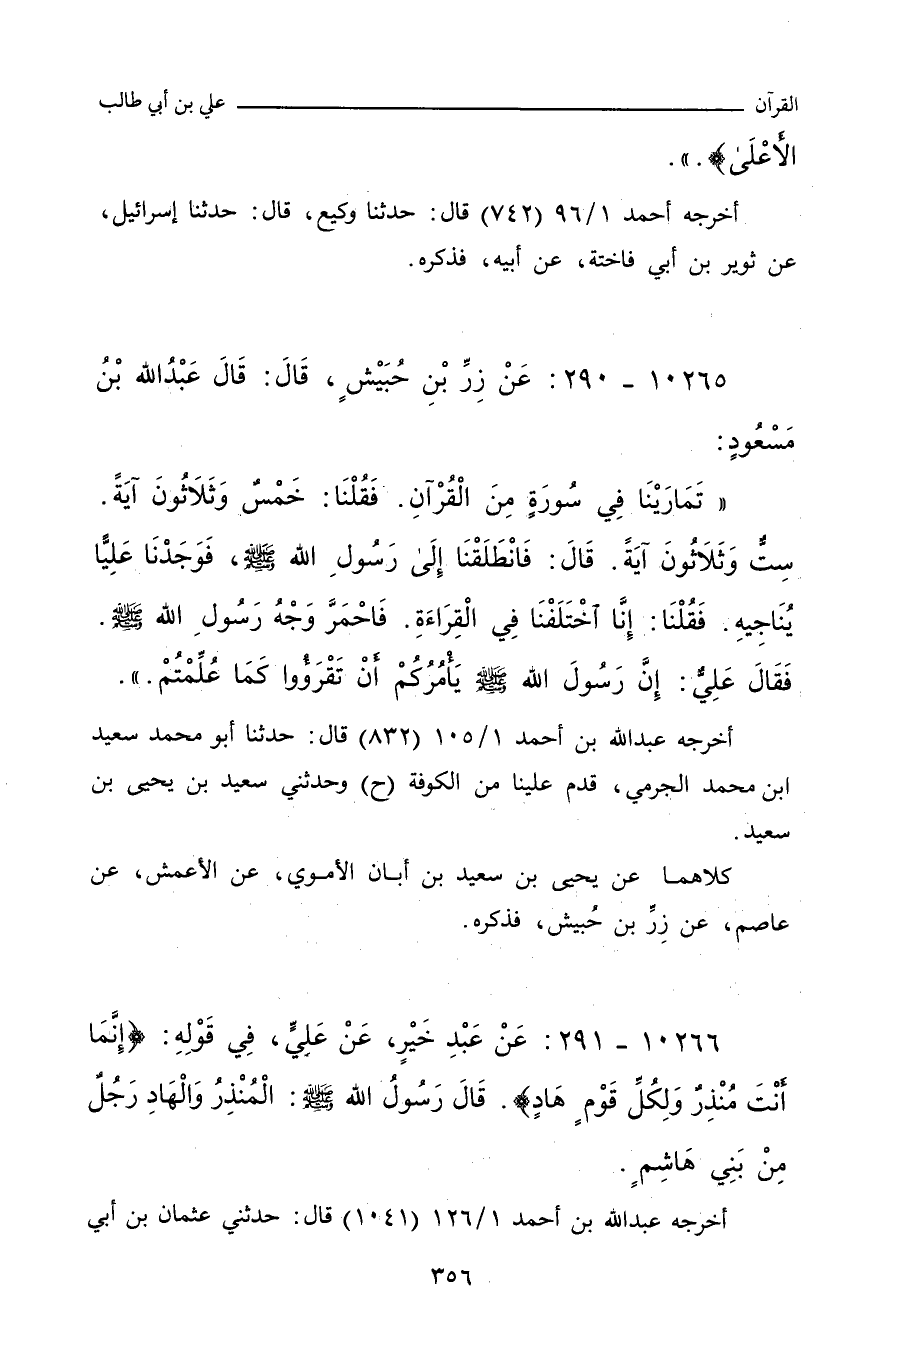 القرآن ــــــــــــــــ علي بن أبي طالب
الأَعْلَىٰ﴾. ».
أخرجه أحمد ٩٦/١ (٧٤٢) قال: حدثنا وكيع، قال: حدثنا إسرائيل،
عن ثوير بن أبي فاختة، عن أبيه، فذكره.
١٠٢٦٥ ـ ٢٩٠: عَنْ زِرِّ بْنِ حُبَيْشٍ، قَالَ: قَالَ عَبْدُالله بْنُ
مَسْعُودٍ:
« تَمَارَيْنَا فِي سُورَةٍ مِنَ الْقُرْآنِ. فَقُلْنَا: خَمْسٌ وَثَلَاثُونَ آيَةً.
سِتٌّ وَثَلَاثُونَ آيَةً. قَالَ: فَانْطَلَقْنَا إِلَىٰ رَسُولِ الله ﷺ، فَوَجَدْنَا عَلِيًّا
يُنَاجِيهِ. فَقُلْنَا: إِنَّا ٱخْتَلَفْنَا فِي الْقِرَاءَةِ. فَاحْمَرَّ وَجْهُ رَسُولِ الله ﷺ.
فَقَالَ عَلِيٌّ: إِنَّ رَسُولَ الله ﷺ يَأْمُرُكُمْ أَنْ تَقْرَؤُوا كَمَا عُلِّمْتُمْ.».
أخرجه عبدالله بن أحمد ١٠٥/١ (٨٣٢) قال: حدثنا أبو محمد سعيد
ابن محمد الجرمي، قدم علينا من الكوفة (ح) وحدثني سعيد بن يحيى بن
سعيد.
كلاهما عن يحيى بن سعيد بن أبان الأموي، عن الأعمش، عن
عاصم، عن زِرِّ بن حُبيش، فذكره.
١٠٢٦٦ ـ ٢٩١: عَنْ عَبْدِ خَيْرٍ، عَنْ عَلِيٍّ، فِي قَوْلِهِ: ﴿إِنَّمَا
أَنْتَ مُنْذِرٌ وَلِكُلِّ قَوْمٍ هَادٍ﴾. قَالَ رَسُولُ الله ﷺ: الْمُنْذِرُ وَالْهَادِ رَجُلٌ
مِنْ بَنِي هَاشِمٍ.
أخرجه عبدالله بن أحمد ١٢٦/١ (١٠٤١) قال: حدثني عثمان بن أبي
٣٥٦